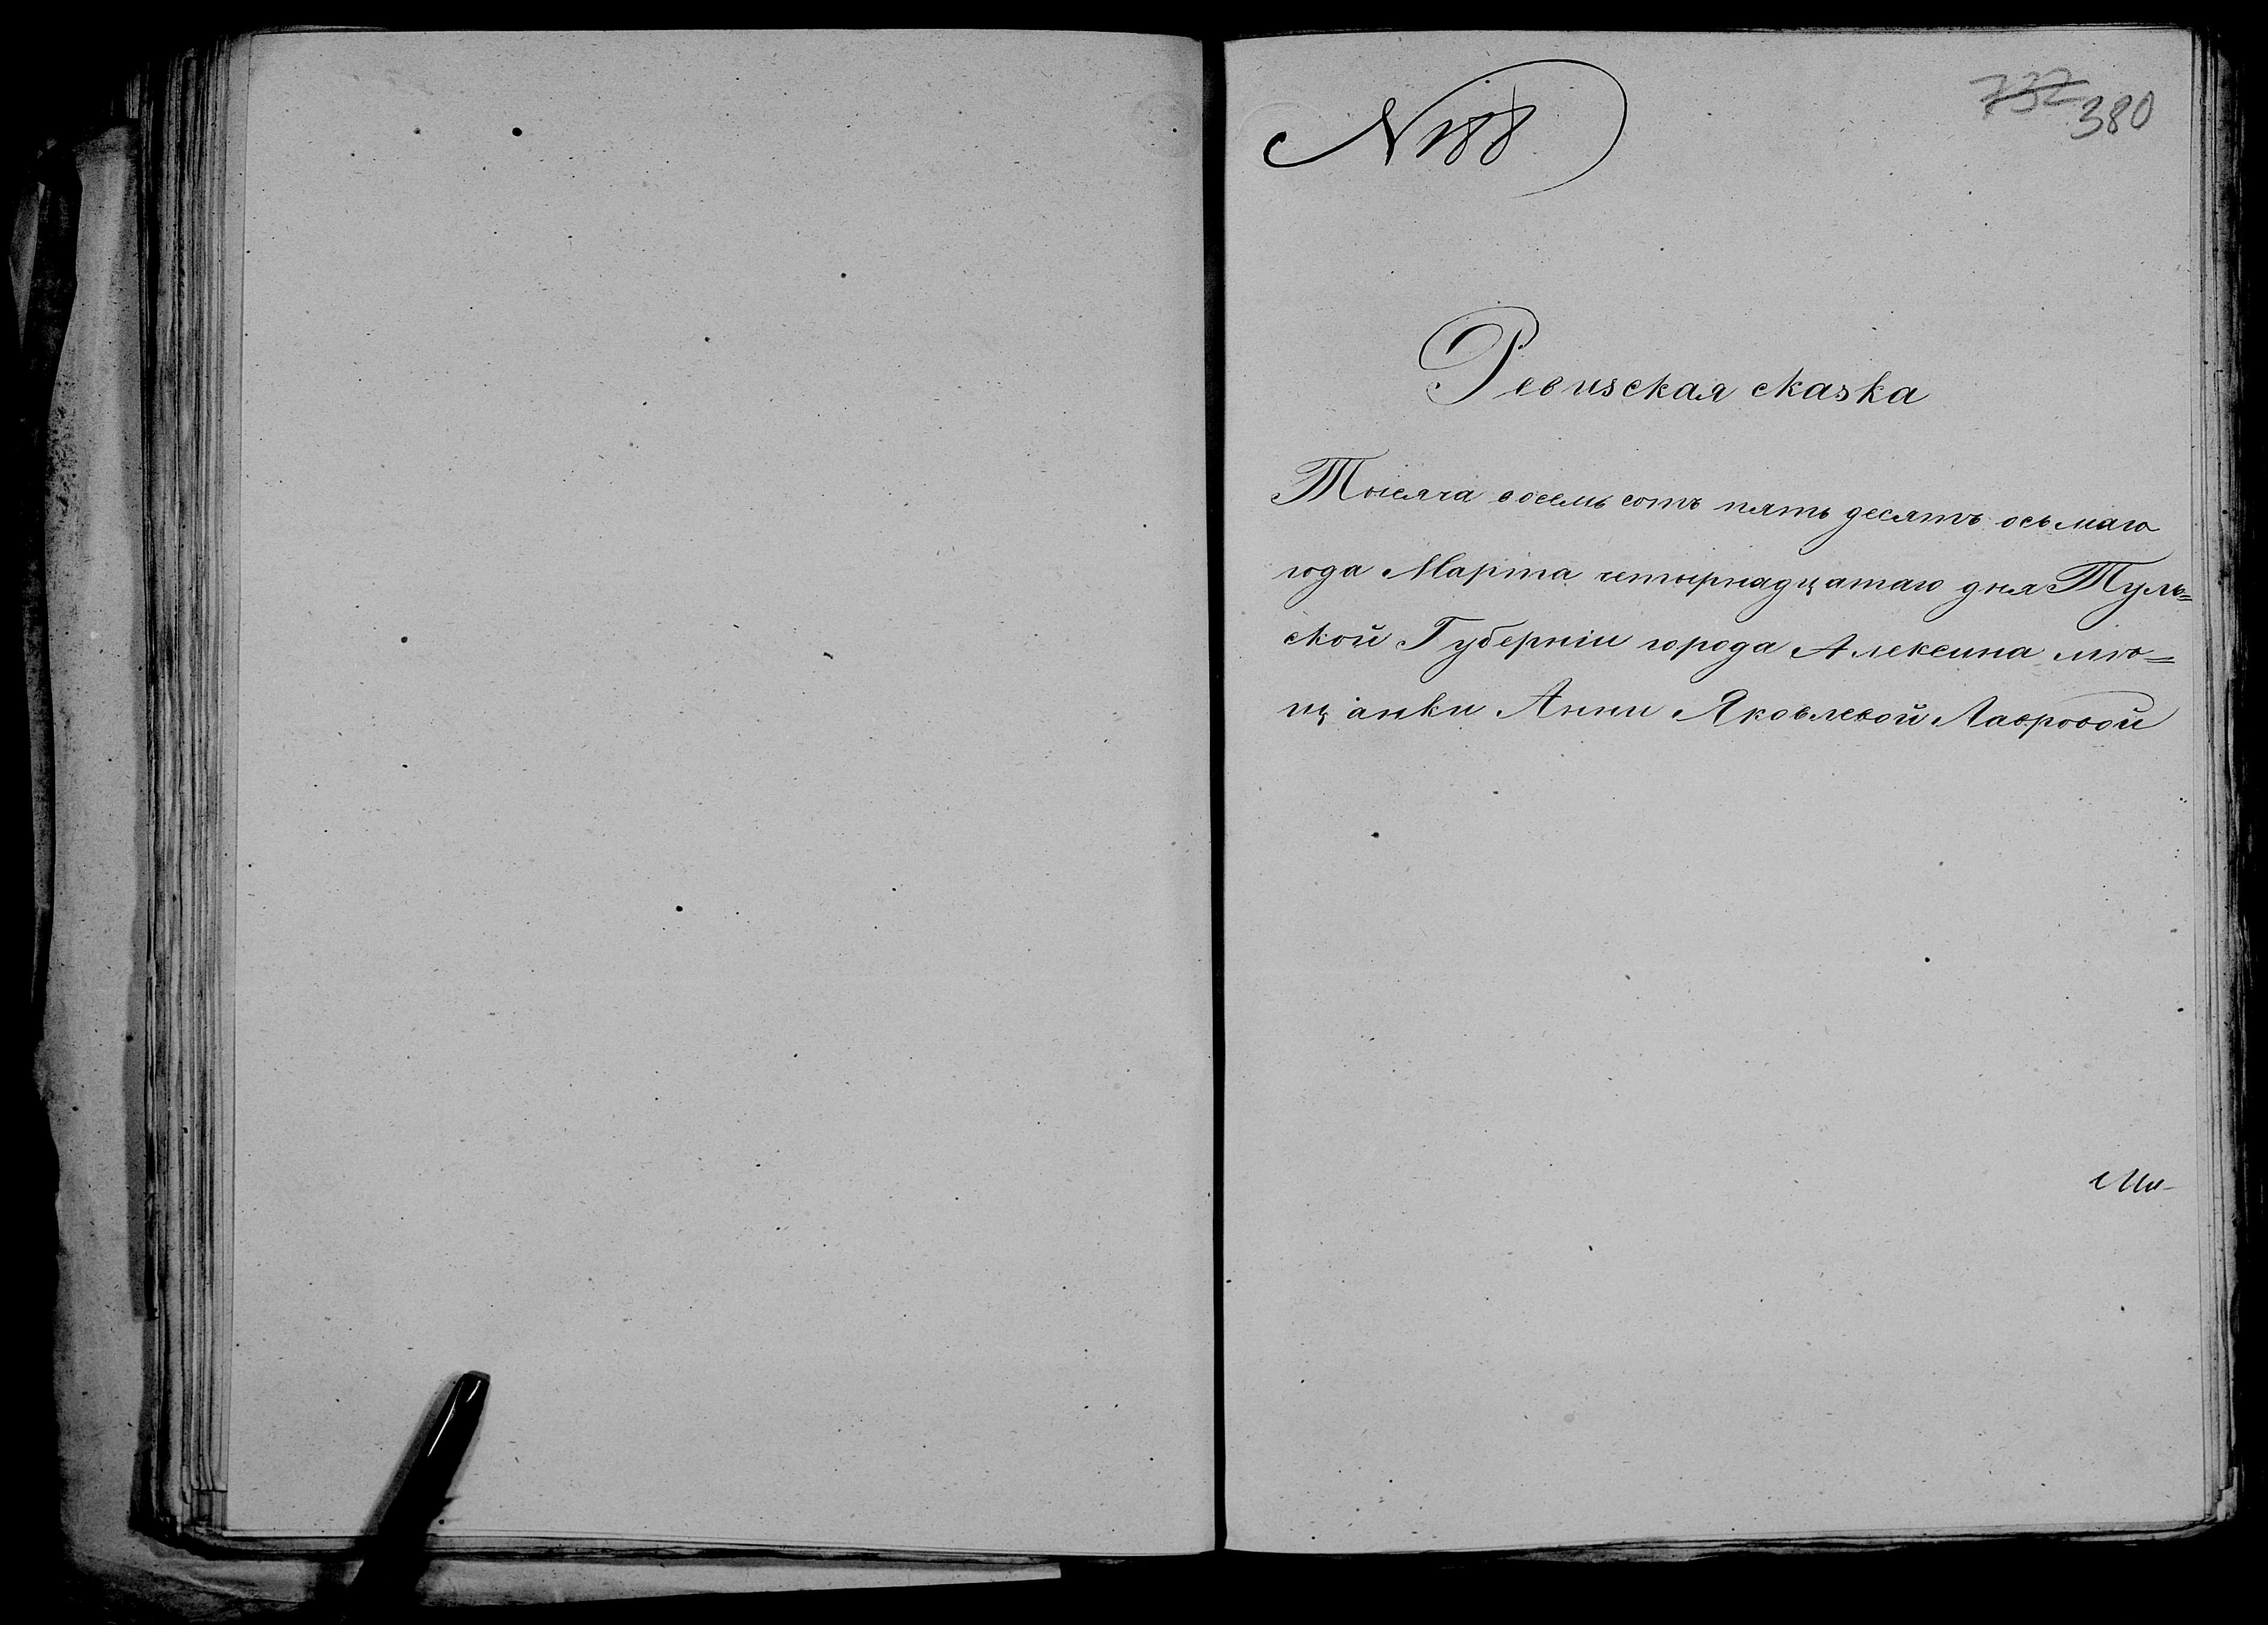 N 188
732 380
Ревизская сказка
Тысяча восемь сотъ пять десятъ осьмаго
года Марта четырнадцатаго дня Туль=
ской Губерніи города Алексина мѣ=
щанки Анны Яковлевой Лавровой